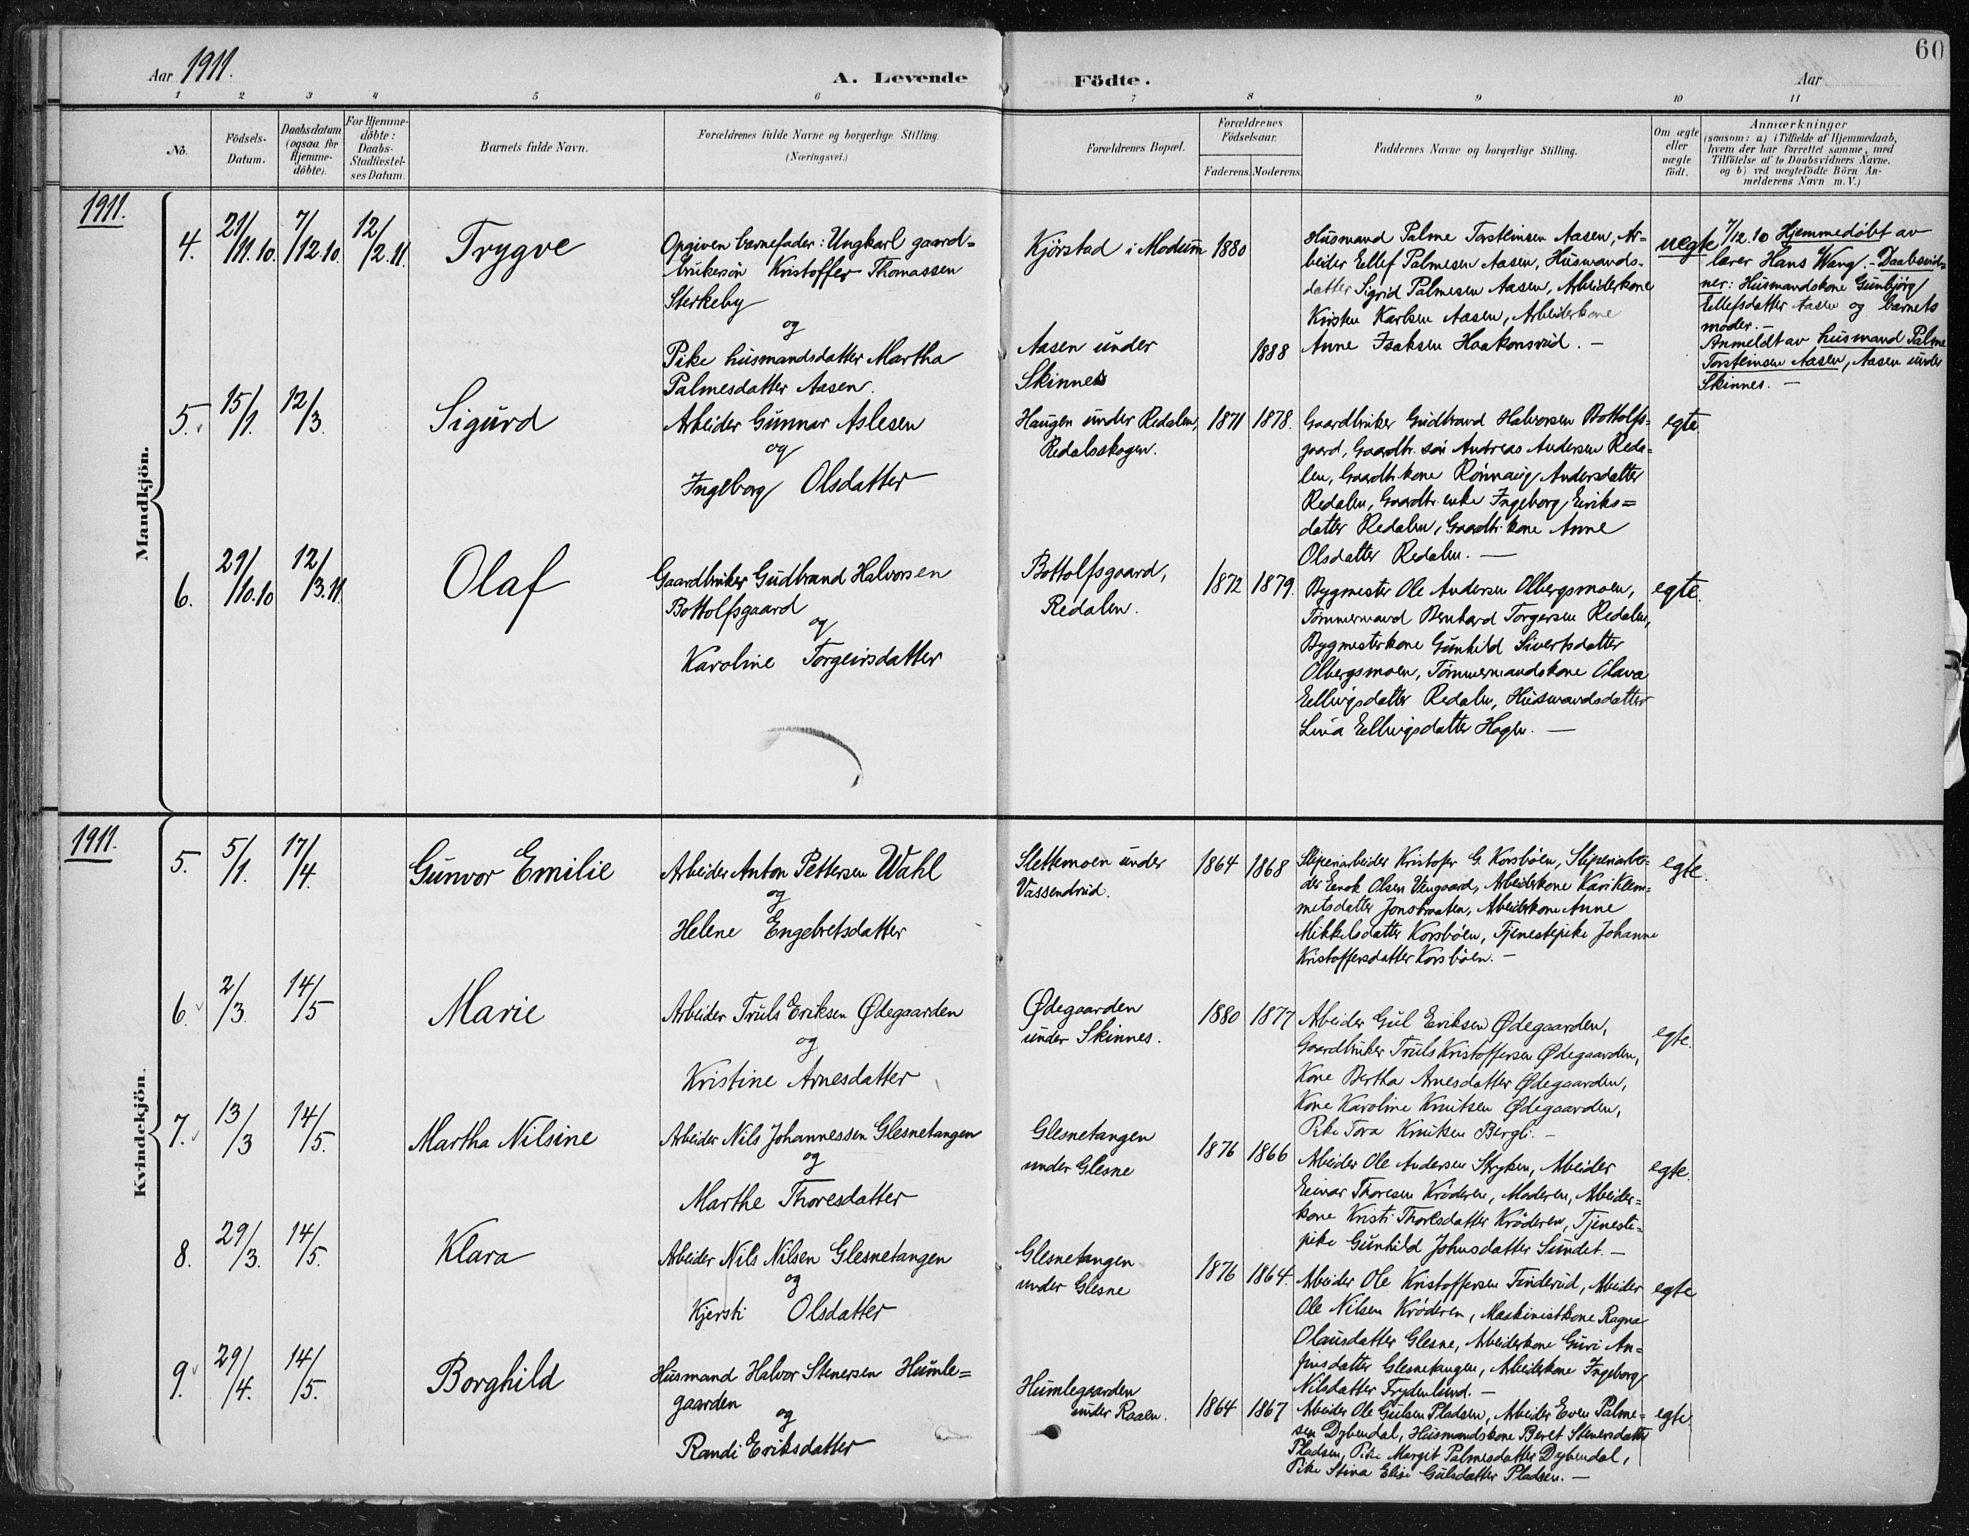 60
Aar 1911.
A. Levende Födte.
Aar
1 2 3 4 5 6 7 8 9 10 11
No.
Födsels-
Datum.
Daabsdatum
(ogsaa for
Hjemme-
döbte).
For Hjemme-
döbte:
Daabs-
Stadfæstel-
ses Datum.
Barnets fulde Navn.
Forældrenes fulde Navne og borgerlige Stilling.
(Næringsvei.)
Forældrenes Bopæl.
Forældrenes
Födselsaar.
Faderens. Moderens.
Faddernes Navne og borgerlige Stilling.
Om ægte
eller
uægte
födt.
Anmærkninger
(saasom: a) i Tilfælde af Hjemmedaab,
hvem der har forrettet samme, med
Tilföielse af to Daabsvidners Navne,
og b) ved uægtefödte Börn An-
melderens Navn m. V.)
1911.
Mandkjön.
4.
21/11.10.
7/12.10.
12/2.11.
Trygve
Opgiven barnefader: Ungkarl gaard=
brukersön Kristoffer Thomassen
Sterkeby
og
Pike husmandsdatter Martha
Palmesdatter Aasen.
Kjörstad i Modum
Aasen under
Skinnes
1880
1888
Husmand Palme Torsteinsen Aasen, Ar-
beider Ellef Palmesen Aasen, Husmands-
datter Sigrid Palmesen Aasen, Arbeiderkone
Kirsten Karlsen Aasen, Arbeiderkone
Anne Isaksen Haakonsrud. —
uegte
7/12.10 Hjemmedöbt av
lærer Hans Wang. - Daabsvid=
ner: Husmandskone Gunbjörg
Ellefsdatter Aasen og barnets
moder. —
Anmeldt av husmand Palme
Torsteinsen Aasen, Aasen under
Skinnes. —
5.
15/1.
12/3.
Sigurd
Arbeider Gunnar Aslesen
og
Ingeborg Olsdatter
Haugen under Redalen,
Redalsskogen.
1871 1878.
Gaardbruker Gudbrand Halvorsen Bottolfs-
gaard, Gaardbr. sön Andreas Andersen Reda-
len, Gaardbr. kone Rönnaug Andersdatter
Redalen, Gaardbr. enke Ingeborg Eeriks=
datter Redalen, Gaardbr. kone Anne
Olsdatter Redalen. —
egte.
6.
29/10.10
12/3.11.
Olaf
Gaardbruker Gudbrand Halvorsen
Bottolfsgaard
og
Karoline Torgeirsdatter
Bottolfsgaard,
Redalen.
1872 1879.
Bygmester Ole Andersen Olbergsmoen,
Tømmermand Bernhard Torgersen Redalen,
Bygmesterkone Gunhild Sivertsdatter
Olbergsmoen, Tømmermandskone Olava
Ellingsdatter Redalen, Husmandsdatter
Lina Ellingsdatter. —
egte.
1911.
Kvindekjön.
5.
5/1.
17/4.
Gunvor Emilie
Arbeider Anton Pettersen Wahl
og
Helene Engebretsdatter
Slettemoen under
Vassendrud.
1864 1868
Sliperiarbeider Kristofer G. Korsböen, Sliperiarbei-
der Enok Olsen, Arbeiderkone Kari Klem=
metsdatter Jonsbraaten, Arbeiderkone Anne
Mikkelsdatter Korsböen, Tjenestepike Johanne
Kristoffersdatter Korsböen. —
egte.
6.
2/3.
14/5
Marie
Arbeider Truls Eriksen Ødegaarden
og
Kristine Arnesdatter
Ødegaarden
under Skinnes.
1880 1877
Arbeider Gul Eriksen Ødegaarden,
Gaardbruker Truls Kristoffersen Ødegaarden,
Kone Bertha Arnesdatter Ødegaarden,
Kone Karoline Knutsen Ødegaarden,
Pike Tora Knutsen Bergli. —
egte.
7.
13/3
14/5.
Martha Nilsine
Arbeider Nils Johannessen Glesnetangen
og
Marthe Thoresdatter
Glesnetangen
under Glesne
1876 1866
Arbeider Ole Andersen Stryken, Arbeider
Einar Thoresen Krøderen, Moderen, Arbeider-
kone Kristi Thoresdatter Krøderen, Tjeneste-
pike Gunhild Johnsdatter Sundet. —
egte.
8.
29/3.
14/5.
Klara
Arbeider Nils Nilsen Glesnetangen
og
Kjersti Olsdatter
Glesnetangen
under Glesne
1876 1864.
Arbeider Ole Kristoffersen Finderud, Arbeider
Ole Nilsen Krøderen, Maskinistkone Ragna
Olausdatter Glesne, Arbeiderkone Guri An=
finsdatter Glesnetangen, Arbeiderkone Ingeborg
Nilsdatter Frydenlund. —
egte
9.
29/4.
14/5.
Borghild
Husmand Halvor Stenersen Humle=
gaarden
og
Randi Eriksdatter
Humlegaarden
under Raaen.
1864 1867
Arbeider Ole Gulsen Pladsen, Arbeider Even Palme=
sen Dybendal, Husmandskone Beret Stenersdatter
Pladsen, Pike Margit Palmesdatter Dybendal,
Pike Stina Elise Gulsdatter Pladsen. —
egte.